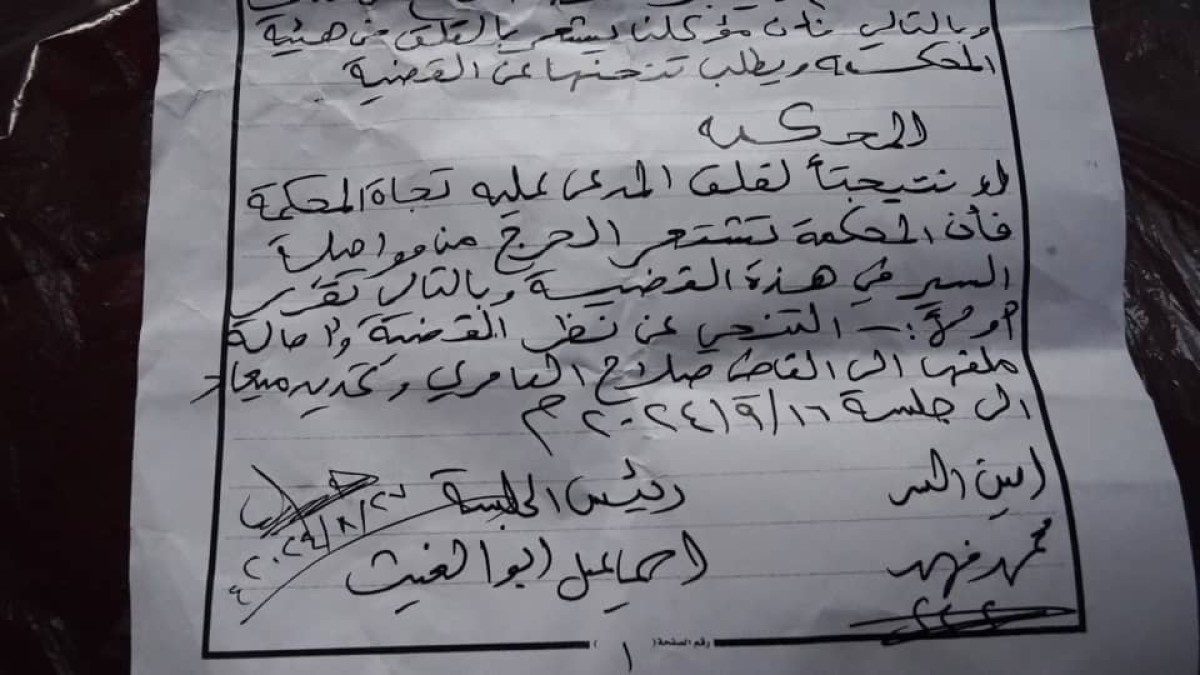 وبالتالي فأن مؤكلنا يشعر بالقلق من هيئة
المحكمة ويطلب تنحيتها عن القضية
المحكمة
نتيجتأ لقلق المدعى عليه تجاة المحكمة
فأن المحكمة تشتعر الحرج من مواصلة
السير في هذة القضية وبالتالي تقرر
أولاً :- التنحي عن نظر القضية واحالة
ملفها الى القاضي صلاح العامري وتحديد ميعاد
الى جلسة ٢٠٢٤/٩/١٦م
امين السر
رئيس الجلسة
محمد فهد
اسماعيل ابوالغيث
رقم الصفحة ( ١ )